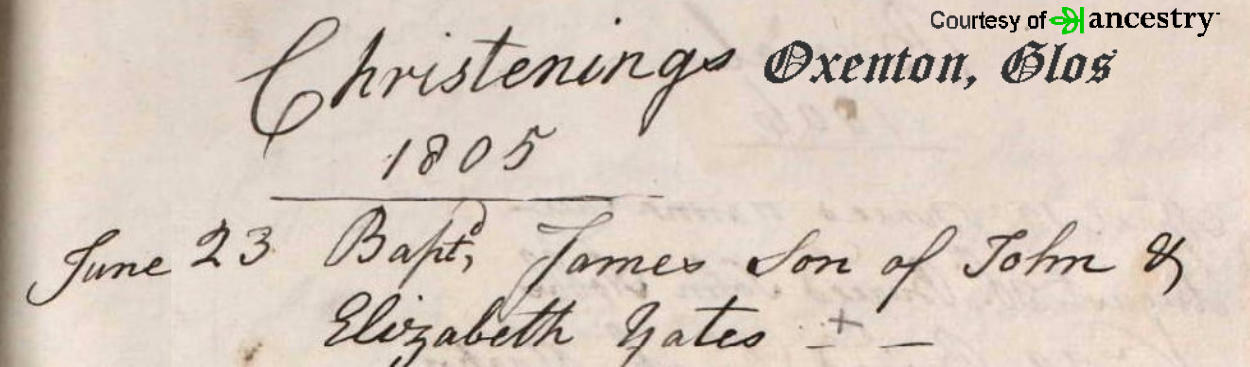 Courtesy of ancestry
Christenings Oxenton, Glos
1805
June 23 Bapt^d, James Son of John &
Elizabeth Yates + –